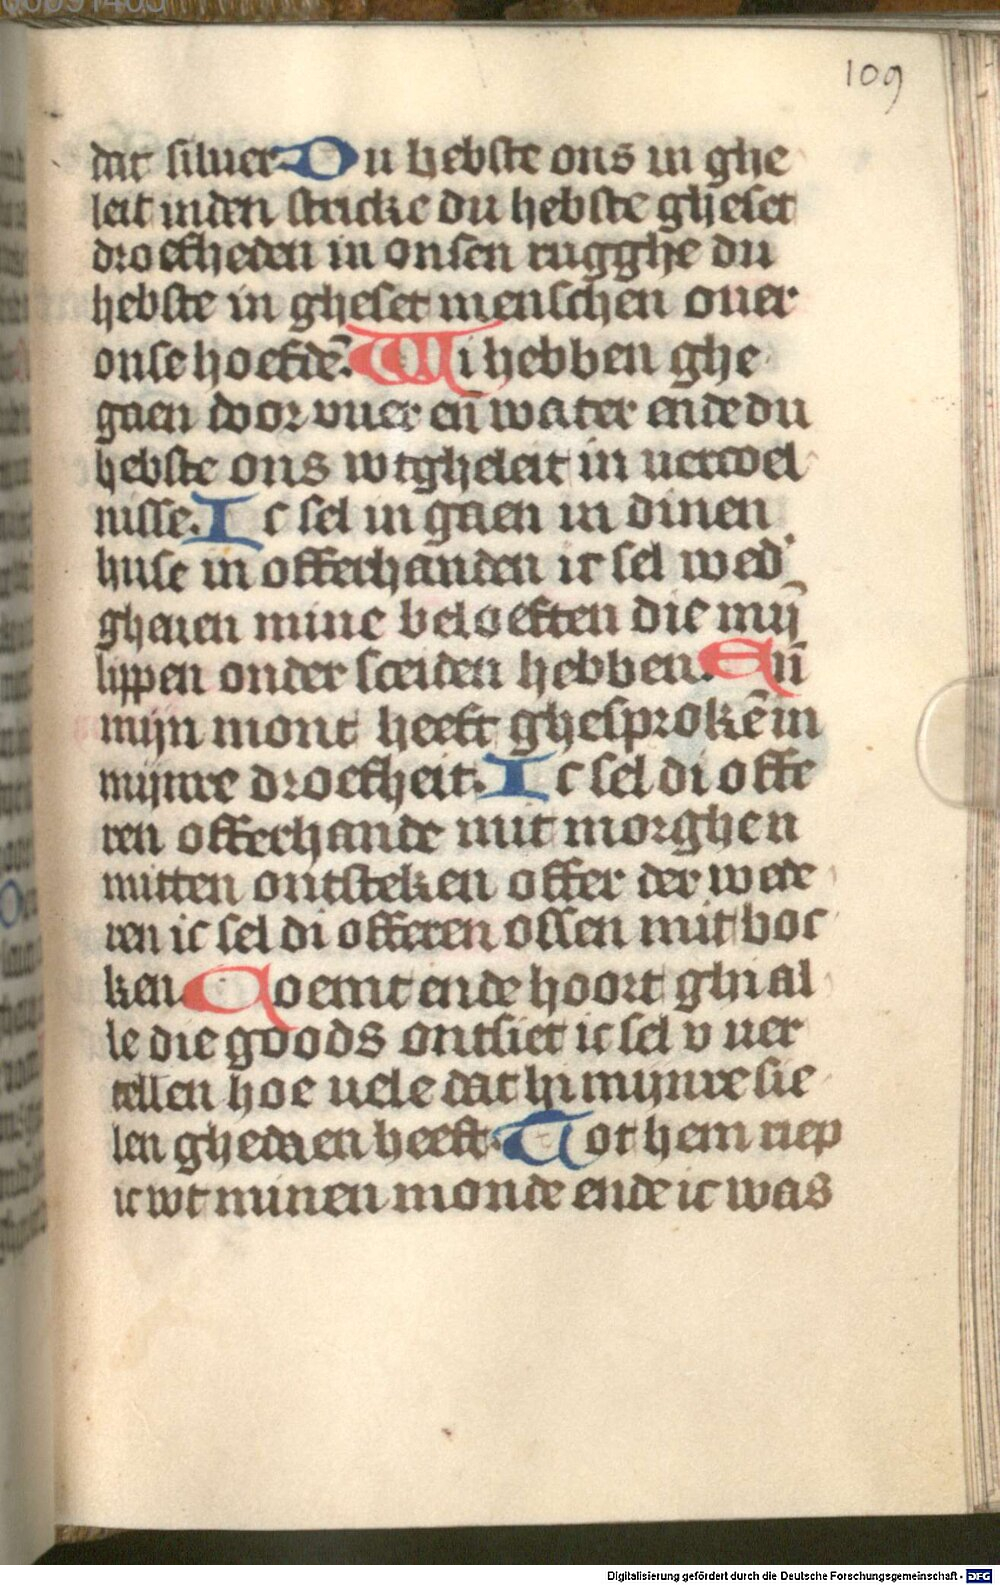 109
dat siluer Du hebste ons in ghe
leit inden stricke du hebste gheset
droefheden in onsen rugghe du
hebste in gheset menschen ouer
onse hoefdē. Wi hebben ghe
gaen door vuer eñ water ende du
hebste ons wtgheleit in uercoel
nisse. Ic sel in gaen in dinen
huse in offerhanden ic sel wed'
gheuen mine beloeften die mijn̄
lippen onder sceiden hebben. Eñ
mijn mont heeft ghesprokē in
mijnre droefheit. Ic sel di offe
ren offerhande mit morghen
mitten ontsteken offer der wede
ren ic sel di offeren ossen mit boc
ken Coemt ende hoort ghi al
le die goods ontsiet ic sel v uer
tellen hoe uele dat hi mijnre sie
len ghedaen heeft. Tot hem riep
ic wt minen monde ende ic was
Digitalisierung gefördert durch die Deutsche Forschungsgemeinschaft - DFG